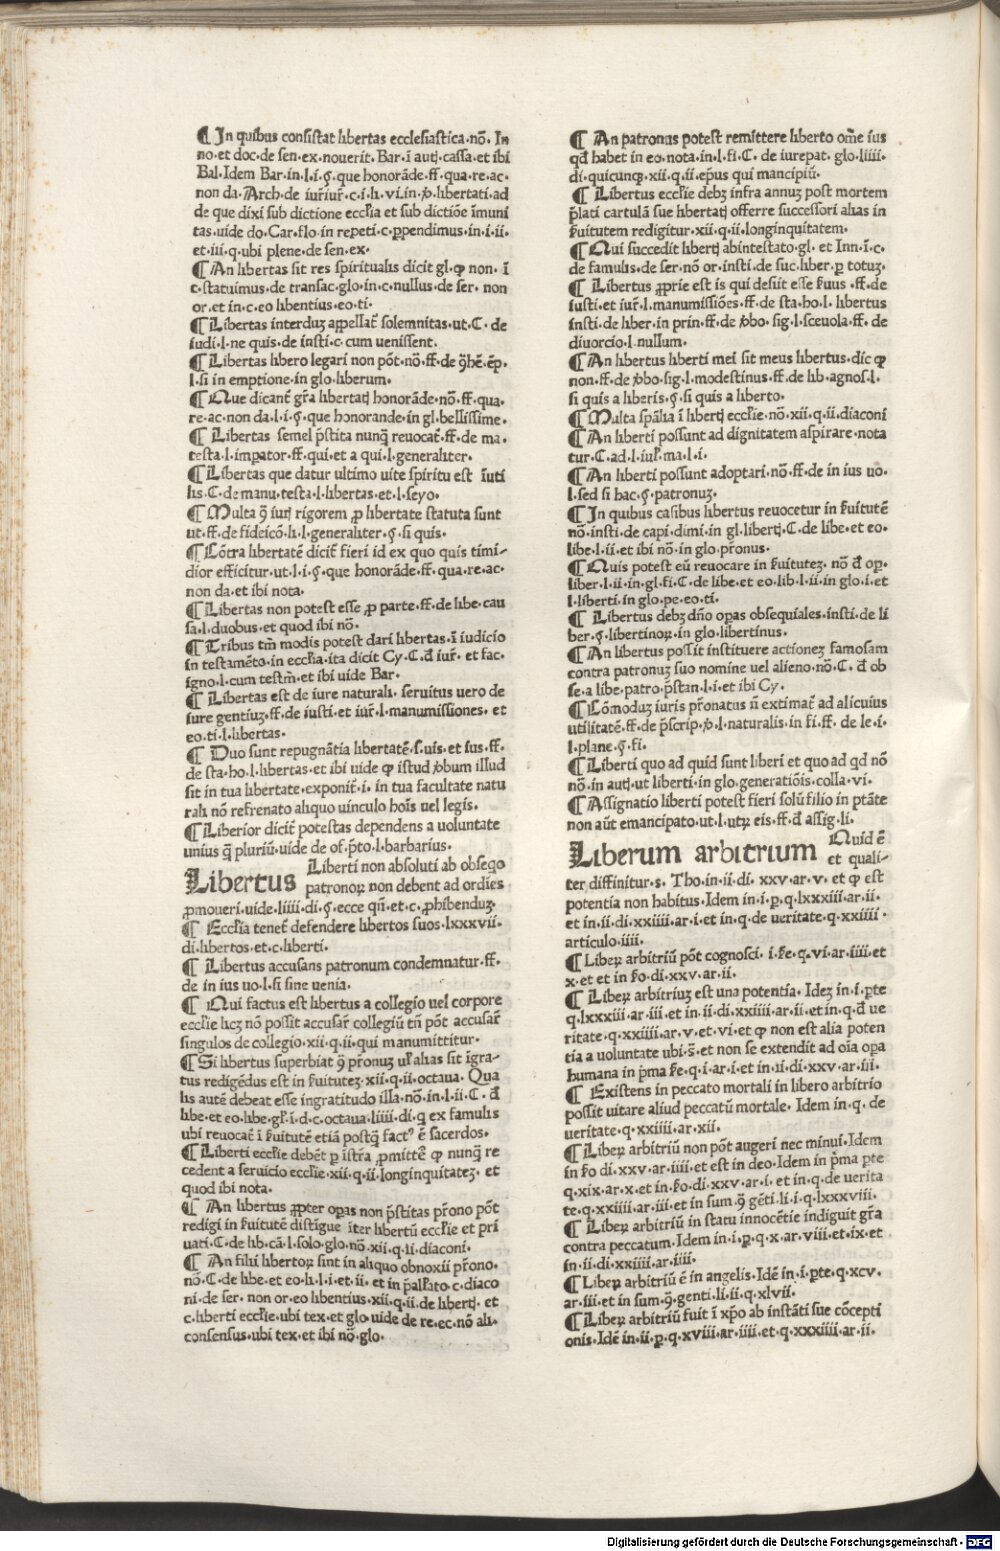 ¶ In quibus consistat libertas ecclesiastica·nō· In
no·et doc·de sen·ex·nouerit· Bar·ī autꝫ·cassa·et ibi
Bal·Idem Bar·in·l·i·ꝭ·que honorāde·ff·qua·re·ac·
non da·Arch·de iur̄iur̄·c·i·li·vi·in·ꝓ·libertati·ad
de que dixi sub dictione ecclia et sub dictiōe īmuni
tas·uide do·Car·flo·in repeti·c·ꝑpendimus·in·i·ii·
et·iii·q·ubi plene·de sen·ex·
¶ An libertas sit res spiritualis dicit gl·ꝙ non· ī
c·statuimus·de transac·glo·in·c·nullus·de ser· non
or·et in·c·eo libentius·eo·ti·
¶ Libertas interduꝫ appellat̄ solemnitas·ut·C· de
iudi·l·ne quis·de insti·c·cum uenissent·
¶ Libertas libero legari non pōt·nō·ff·de ꝯhē·ēp·
l·si in emptione·in glo·liberum·
¶ Que dicant̄ gr̄a libertatꝫ honorāde·nō·ff·qua·
re·ac·non da·l·i·ꝭ·que honorande·in gl·bellissime·
¶ Libertas semel p̄stita nunq̄ reuocat̄·ff·de ma·
testa·l·imꝑator·ff·qui·et a qui·l·generaliter·
¶ Libertas que datur ultimo uite spiritu est īuti
lis·C·de manu·testa·l·libertas·et·l·seyo·
¶ Multa ꝯ iurꝫ rigorem ꝓ libertate statuta sunt
ut·ff·de fideicō·li·l·generaliter·ꝭ·si quis·
¶ Cōtra libertatē dicit̄ fieri id ex quo quis timi-
dior efficitur·ut·l·i·ꝭ·que honorāde·ff·qua·re·ac·
non da·et ibi nota·
¶ Libertas non potest esse ꝓ parte·ff·de libe·cau
sa·l·duobus·et quod ibi nō·
¶ Tribus tm̄ modis potest dari libertas·ī iudicio
in testamēto·in ecclia·ita dicit Cy·C·đ iur̄·et fac·
igno·l·cum testm̄·et ibi uide Bar·
¶ Libertas est de iure naturali· seruitus uero de
iure gentiuꝫ·ff·de iusti·et iur̄·l·manumissiones· et
eo·ti·l·libertas·
¶ Duo sunt repugnātia libertatē·s·uis·et ius·ff·
de sta·ho·l·libertas·et ibi uide ꝙ istud ꝓbum illud
sit in tua libertate·exponit̄·i· in tua facultate natu
rali nō refrenato aliquo uinculo hoīs uel legis·
¶ Liberior dicit̄ potestas dependens a uoluntate
unius q̄ pluriū·uide de of·p̄to·l·barbarius·
Libertus Liberti non absoluti ab obseqo
patronoꝝ non debent ad ordīes
ꝓmoueri·uide·liiii·di·ꝭ·ecce qn̄·et·c·ꝓhibenduꝫ·
¶ Ecclia tenet̄ defendere libertos suos·lxxxvii·
di·libertos·et·c·liberti·
¶ Libertus accusans patronum condemnatur·ff·
de in ius uo·l·si sine uenia·
¶ Qui factus est libertus a collegio uel corpore
ecclie licꝫ nō possit accusar̄ collegiū tn̄ pōt accusar̄
singulos de collegio·xii·q·ii·qui manumittitur·
¶ Si libertus superbiat ꝯ pr̄onuꝫ ul̄ alias sit īgra-
tus redigēdus est in ẜuituteꝫ·xii·q·ii·octaua· Qua
lis autē debeat esse ingratitudo illa·nō·in·l·ii·C· đ
libe·et eo·libe·gl̄·ī·d·c·octaua·liiii·di·q ex famulis
ubi reuocat̄ ī ẜuitutē etiā postq̄ fact⁹ ē sacerdos·
¶ Liberti ecclie debēt ꝑ īstr̄a ꝓmittē ꝙ nunq̄ re
cedent a seruicio ecclie·xii·q·ii·longinquitateꝫ· et
quod ibi nota·
¶ An libertus ꝓpter oꝑas non p̄stitas pr̄ono pōt
redigi in ẜuitutē distīgue īter libertū ecclie et pri
uati·C·de lib·cā·l·solo·glo·nō·xii·q·ii·diaconi·
¶ An filii libertoꝝ sint in aliquo obnoxii pr̄ono·
nō·C·de libe·et eo·li·l·i·et·ii· et in p̄all̄ato·c·diaco
ni·de ser· non or·eo libentius·xii·q·ii·de libertꝫ· et
c·liberti ecclie·ubi tex·et glo·uide de re·ec·nō ali·
consensus·ubi tex·et ibi nō·glo·
¶ An patronus potest remittere liberto om̄e ius
qđ habet in eo·nota·in·l·fi·C· de iurepat· glo·liiii·
di·quicunqꝫ·xii·q·ii·ep̄us qui mancipiū·
¶ Libertus ecclie debꝫ infra annuꝫ post mortem
p̄lati cartulā sue libertatꝫ offerre successori alias in
ẜuitutem redigitur·xii·q·ii·longinquitatem·
¶ Qui succedit libertꝫ abintestato·gl· et Inn·ī·c·
de famulis·de ser·nō or·insti·de suc·liber·ꝑ totuꝫ·
¶ Libertus ꝓprie est is qui desiit esse ẜuus ·ff·de
iusti·et iur̄·l·manumissiōes·ff·de sta·ho·l· libertus
insti·de liber·in prin·ff·de ꝓbo·sig·l·sceuola·ff· de
diuorcio·l·nullum·
¶ An libertus liberti mei sit meus libertus·dic ꝙ
non·ff·de ꝓbo·sig·l·modestinus·ff·de lib·agnos·l·
si quis a liberis·ꝭ·si quis a liberto·
¶ Multa spālia ī libertꝫ ecclie·nō·xii·q·ii·diaconi
¶ An liberti possunt ad dignitatem aspirare·nota
tur·C·ad·l·iul̄·ma·l·i·
¶ An liberti possunt adoptari·nō·ff·de in ius uo·
l·sed si hac·ꝭ·patronuꝫ·
¶ In quibus casibus libertus reuocetur in ẜuitutē
nō·insti·de capi·dimi·in gl·libertꝫ·C·de libe·et eo·
libe·l·ii·et ibi nō·in glo·pr̄onus·
¶ Quis potest eū reuocare in ẜuituteꝫ· nō đ oꝑ·
liber·l·ii·in·gl·fi·C·de libe·et eo·lib·l·ii·in glo·i·et
l·liberti·in glo·pe·eo·ti·
¶ Libertus debꝫ dn̄o oꝑas obsequiales·insti·de li
ber·ꝭ·libertinoꝝ·in glo·libertinus·
¶ An libertus possit instituere actioneꝫ famosam
contra patronuꝫ suo nomine uel alieno·nō·C· đ ob
se·a libe·patro·p̄stan·l·i·et ibi Cy·
¶ Cōmoduꝫ iuris pr̄onatus n̄ extimat̄ ad alicuius
utilitatē·ff·de p̄scrip·ꝓ·l·naturalis·in fi·ff· de le·i·
l·plane·ꝭ·fi·
¶ Liberti quo ad quid sunt liberi et quo ad qđ nō
nō·in autꝫ·ut liberti·in glo·generatiōis·colla·vi·
¶ Assignatio liberti potest fieri solū filio in ptāte
non aūt emancipato·ut·l·utꝝ eis·ff·đ assig·li·
Liberum arbitrium Quid ē
et quali-
ter diffinitur·s· Tho·in·ii·di· xxv·ar·v· et ꝙ est
potentia non habitus·Idem in·i·ꝑ·q·lxxxiii·ar·ii·
et in·ii·di·xxiiii·ar·i·et in·q·de ueritate·q·xxiiii·
articulo·iiii·
¶ Libeꝝ arbitriū pōt cognosci· i·ẜe·q·vi·ar·iiii·et
x·et et in ẜo·di·xxv·ar·ii·
¶ Libeꝝ arbitriuꝫ est una potentia· Ideꝫ in·i·ꝑte
q·lxxxiii·ar·iii·et in·ii·di·xxiiii·ar·ii·et in·q·đ ue
ritate·q·xxiiii·ar·v·et·vi·et ꝙ non est alia poten
tia a uoluntate ubi·s̄·et non se extendit ad oīa oꝑa
humana in p̄ma ẜe·q·i·ar·i·et in·ii·di·xxv·ar·iii·
¶ Existens in peccato mortali in libero arbitrio
possit uitare aliud peccatū mortale· Idem in·q· de
ueritate·q·xxiiii·ar·xii·
¶ Libeꝝ arbitriū non pōt augeri nec minui·Idem
in ẜo di·xxv·ar·iiii·et est in deo·Idem in p̄ma ꝑte
q·xix·ar·x·et in·ẜo·di·xxv·ar·i· et in·q·de uerita
te·q·xxiiii·ar·iii·et in sum·ꝯ gēti·li·i·q·lxxxviii·
¶ Libeꝝ arbitriū in statu innocētie indiguit gr̄a
contra peccatum·Idem in·i·ꝑ·q·x·ar·viii·et·ix·et
in·ii·di·xxiiii·ar·iiii·
¶ Libeꝝ arbitriū ē in angelis·Idē in·i·ꝑte·q·xcv·
ar·iii·et in sum·ꝯ·genti·li·ii·q·xlvii·
¶ Libeꝝ arbitriū fuit ī xp̄o ab instāti sue cōcepti
onis·Idē in·ii·ꝑ·q·xviii·ar·iiii·et·q·xxxiiii·ar·ii·
Digitalisierung gefördert durch die Deutsche Forschungsgemeinschaft - DFG